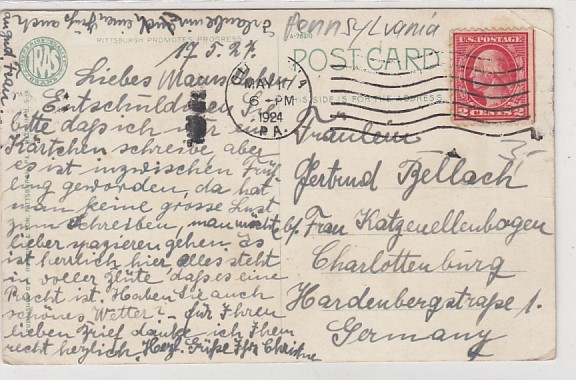 Erlaube mir auch einen Gruß auch
Pennsylvania
PITTSBURGH PROMOTES PROGRESS
A-76810
U.S. POSTAGE
2 CENTS 2
POST CARD
THIS SIDE IS FOR THE ADDRESS
MAY 17
6-PM
1924
PA.
17.5.24.
Liebes
Entschuldigen Sie
bitte daß ich nur ein
Kärtchen schreibe aber
es ist inzwischen Früh
ling geworden, da hat
man keine grosse Lust
zum Schreiben, man möchte
lieber spazieren gehen. Es
ist herrlich hier alles steht
in voller Blüte daß es eine
Pracht ist. Haben Sie auch
schönes Wetter? - für Ihren
lieben Brief danke ich Ihnen
recht herzlich. Herzl. Grüße Ihre Christine
Fräulein
Gertrud Bellach
b/ Frau Katzenellenbogen
Charlottenburg
Hardenbergstraße 1.
Germany